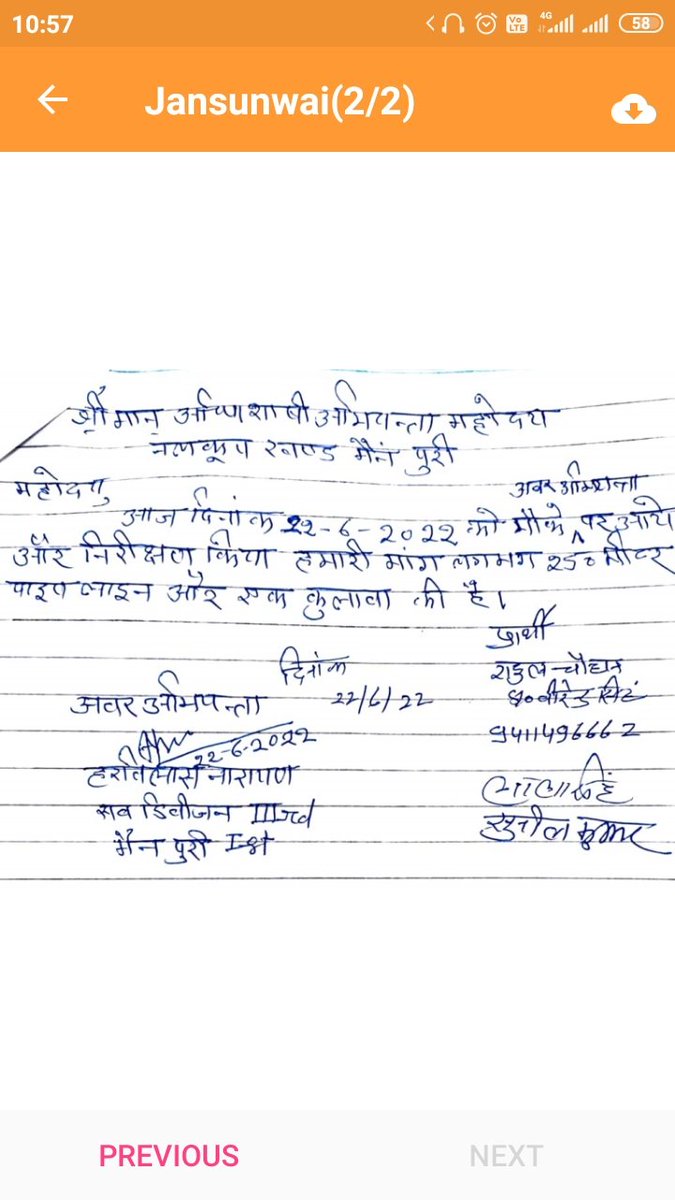 10:57
4G
Vo LTE
58
Jansunwai(2/2)
श्रीमान अधिशाषी अभियन्ता महोदय
नलकूप खण्ड मैनपुरी
महोदय
अवर अभियन्ता
आज दिनांक 22-6-2022 को मौके पर आये
और निरीक्षण किया हमारी मांग लगभग 250 मीटर
पाइप लाइन और एक कुलावा की है।
प्रार्थी
दिनांक
राहुल चौहान
अवर अभियन्ता 22/6/22
वीरेन्द्र सिंह
22-6-2022
9411496662
नारायण
सब डिवीजन IIIrd
मैनपुरी Ist
सुनील कुमार
PREVIOUS
NEXT